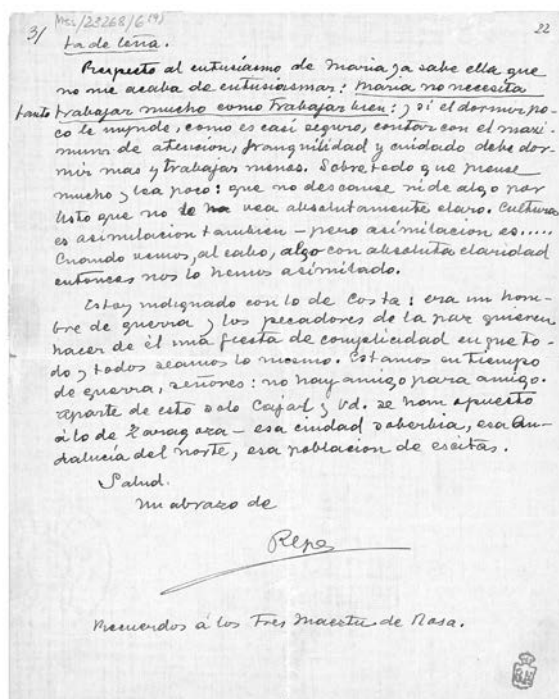 Mss/23268/6(9)
3/
22
ta de leña.
Respecto al entusiasmo de Maria ya sabe ella que
no me acaba de entusiasmar: Maria no necesita
tanto trabajar mucho como trabajar bien: y si el dormir po-
co le impide, como es casi seguro, contar con el maxi-
mum de atencion, tranquilidad y cuidado debe dor-
mir mas y trabajar menos. Sobre todo que piense
mucho y lea poco: que no descanse ni de algo por
listo que no lo vea absolutamente claro. Cultura
es asimilacion tambien – pero asimilacion es.....
Cuando vemos, al cabo, algo con absoluta claridad
entonces nos lo hemos asimilado.
Estoy indignado con lo de Costa: era un hom-
bre de guerra y los pecadores de la paz quieren
hacer de él una fiesta de complicidad en que to-
do y todos seamos lo mismo. Estamos en tiempo
de guerra, señores: no hay amigo para amigo.
Aparte de esto solo Cajal y Vd. se han opuesto
á lo de Zaragoza – esa ciudad soberbia, esa An-
dalucía del norte, esa poblacion de escitas.
Salud.
Un abrazo de
Pepe
Recuerdos á los Tres Maeztu de Plasa.